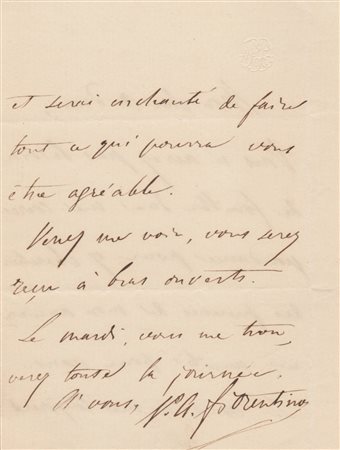 et serai enchanté de faire
tout ce qui pourra vous
être agréable.
Venez me voir, vous serez
reçu à bras ouverts.
Le mardi, vous me trou,
verez toute la journée.
A vous, P. A. Fiorentino